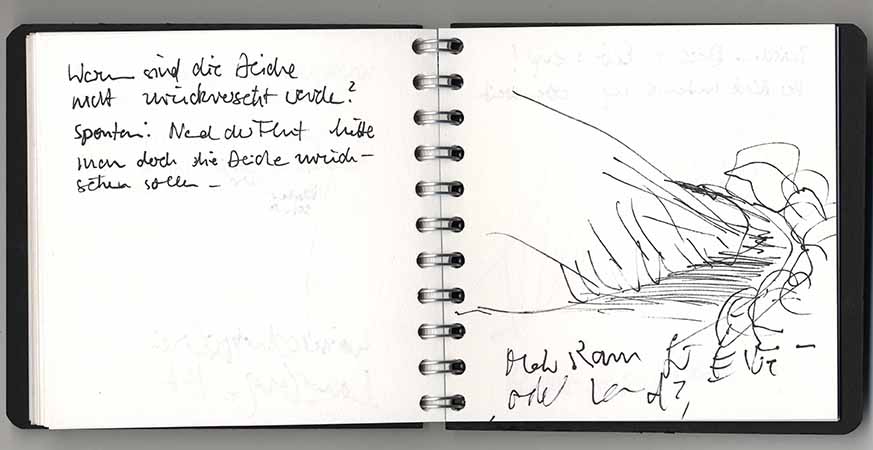 Warum sind die Deiche
nicht zurückversetzt worden?
Spontan: Nach der Flut hätte
man doch die Deiche zurück-
setzen sollen –
Mehr Raum für Elbe –
oder Land?